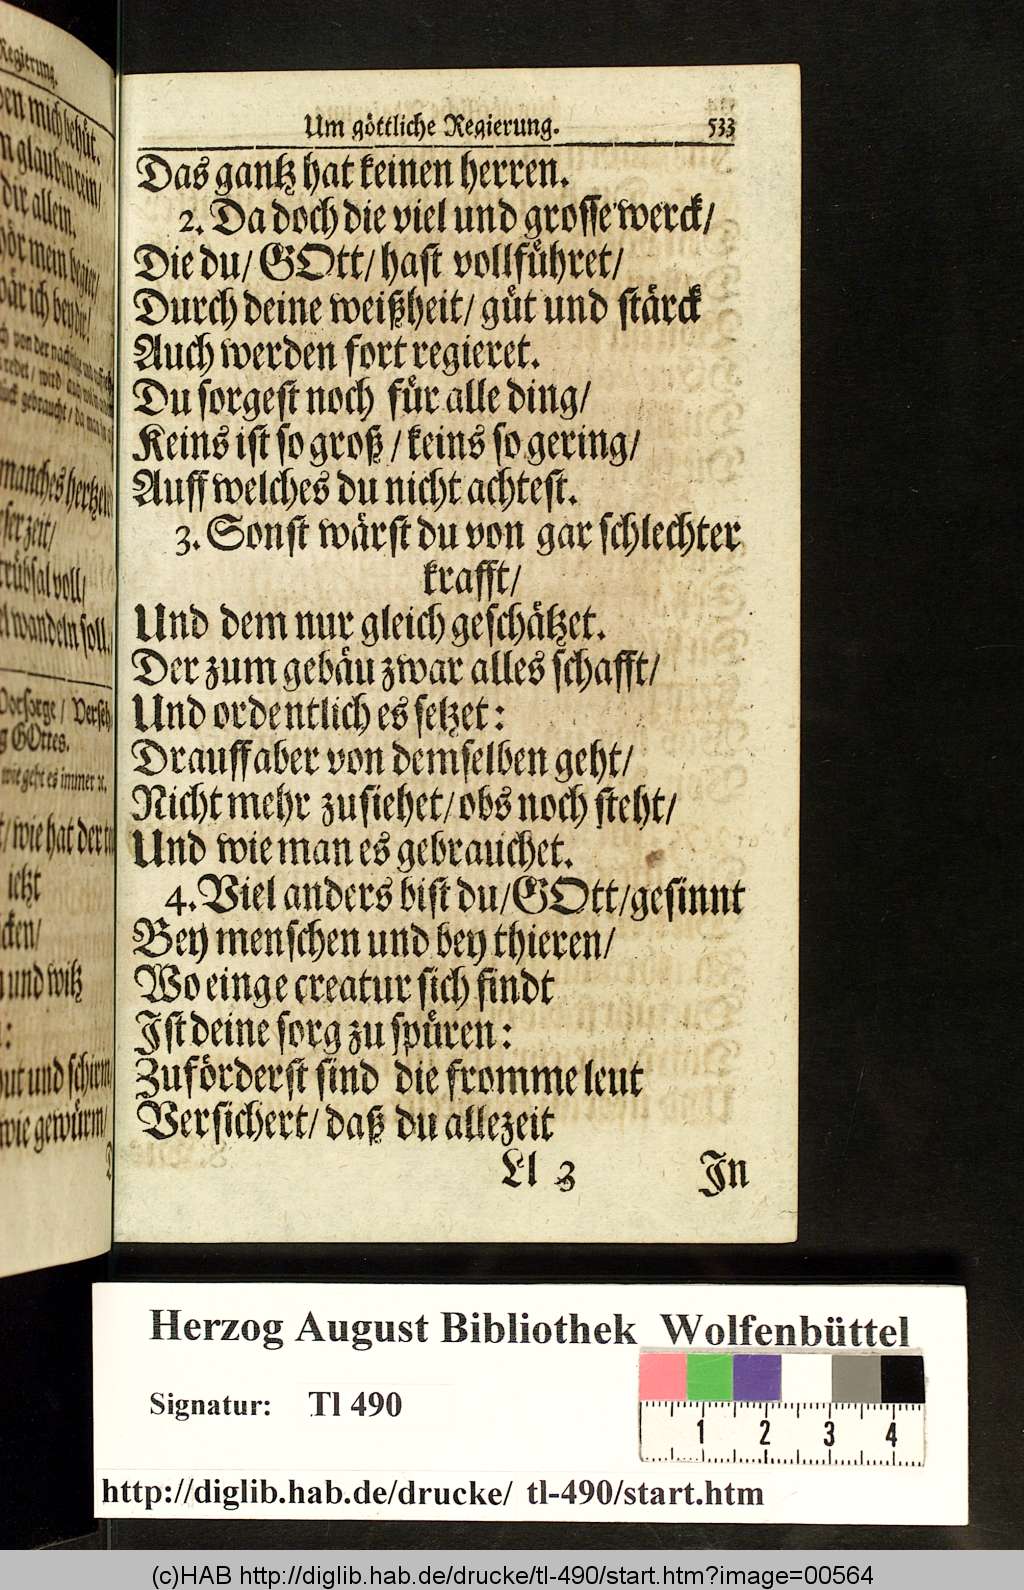 Regierung.
mich behüt.
glauben rein/
dir allein.
mein begier/
ich bey dir/
manches hertzeleid
zeit/
trübsal voll/
wandeln soll.
Vorsorge / Verseh
GOttes.
wie geht es immer ꝛc.
/ wie hat der
ietzt
und witz
:
und schirm
wie gewürm/
Um göttliche Regierung. 533
Das gantz hat keinen herren.
2. Da doch die viel und grosse werck/
Die du/ GOtt/ hast vollführet/
Durch deine weißheit/ güt und stärck
Auch werden fort regieret.
Du sorgest noch für alle ding/
Keins ist so groß / keins so gering/
Auff welches du nicht achtest.
3. Sonst wärst du von gar schlechter
krafft/
Und dem nur gleich geschätzet.
Der zum gebäu zwar alles schafft/
Und ordentlich es setzet:
Drauff aber von demselben geht/
Nicht mehr zusiehet/ obs noch steht/
Und wie man es gebrauchet.
4. Viel anders bist du/ GOtt/ gesinnt
Bey menschen und bey thieren/
Wo einge creatur sich findt
Ist deine sorg zu spüren:
Zuförderst sind die fromme leut
Versichert/ daß du allezeit
Ll 3 In
Herzog August Bibliothek Wolfenbüttel
Signatur: Tl 490
1 2 3 4
http://diglib.hab.de/drucke/ tl-490/start.htm
(c)HAB http://diglib.hab.de/drucke/tl-490/start.htm?image=00564